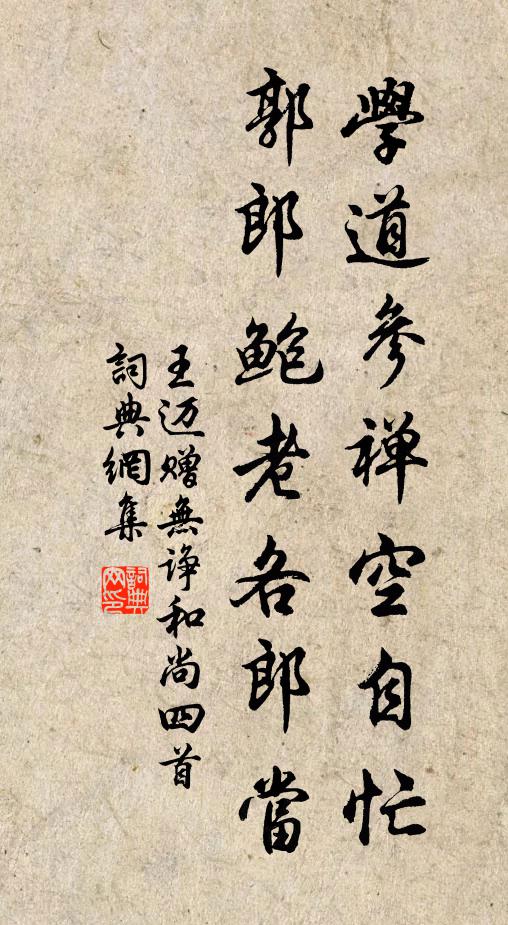 學道參禅空自忙
郭郎鲍老各郎當
王迈赠無諍和尚四首
詞典網集
詞典网印